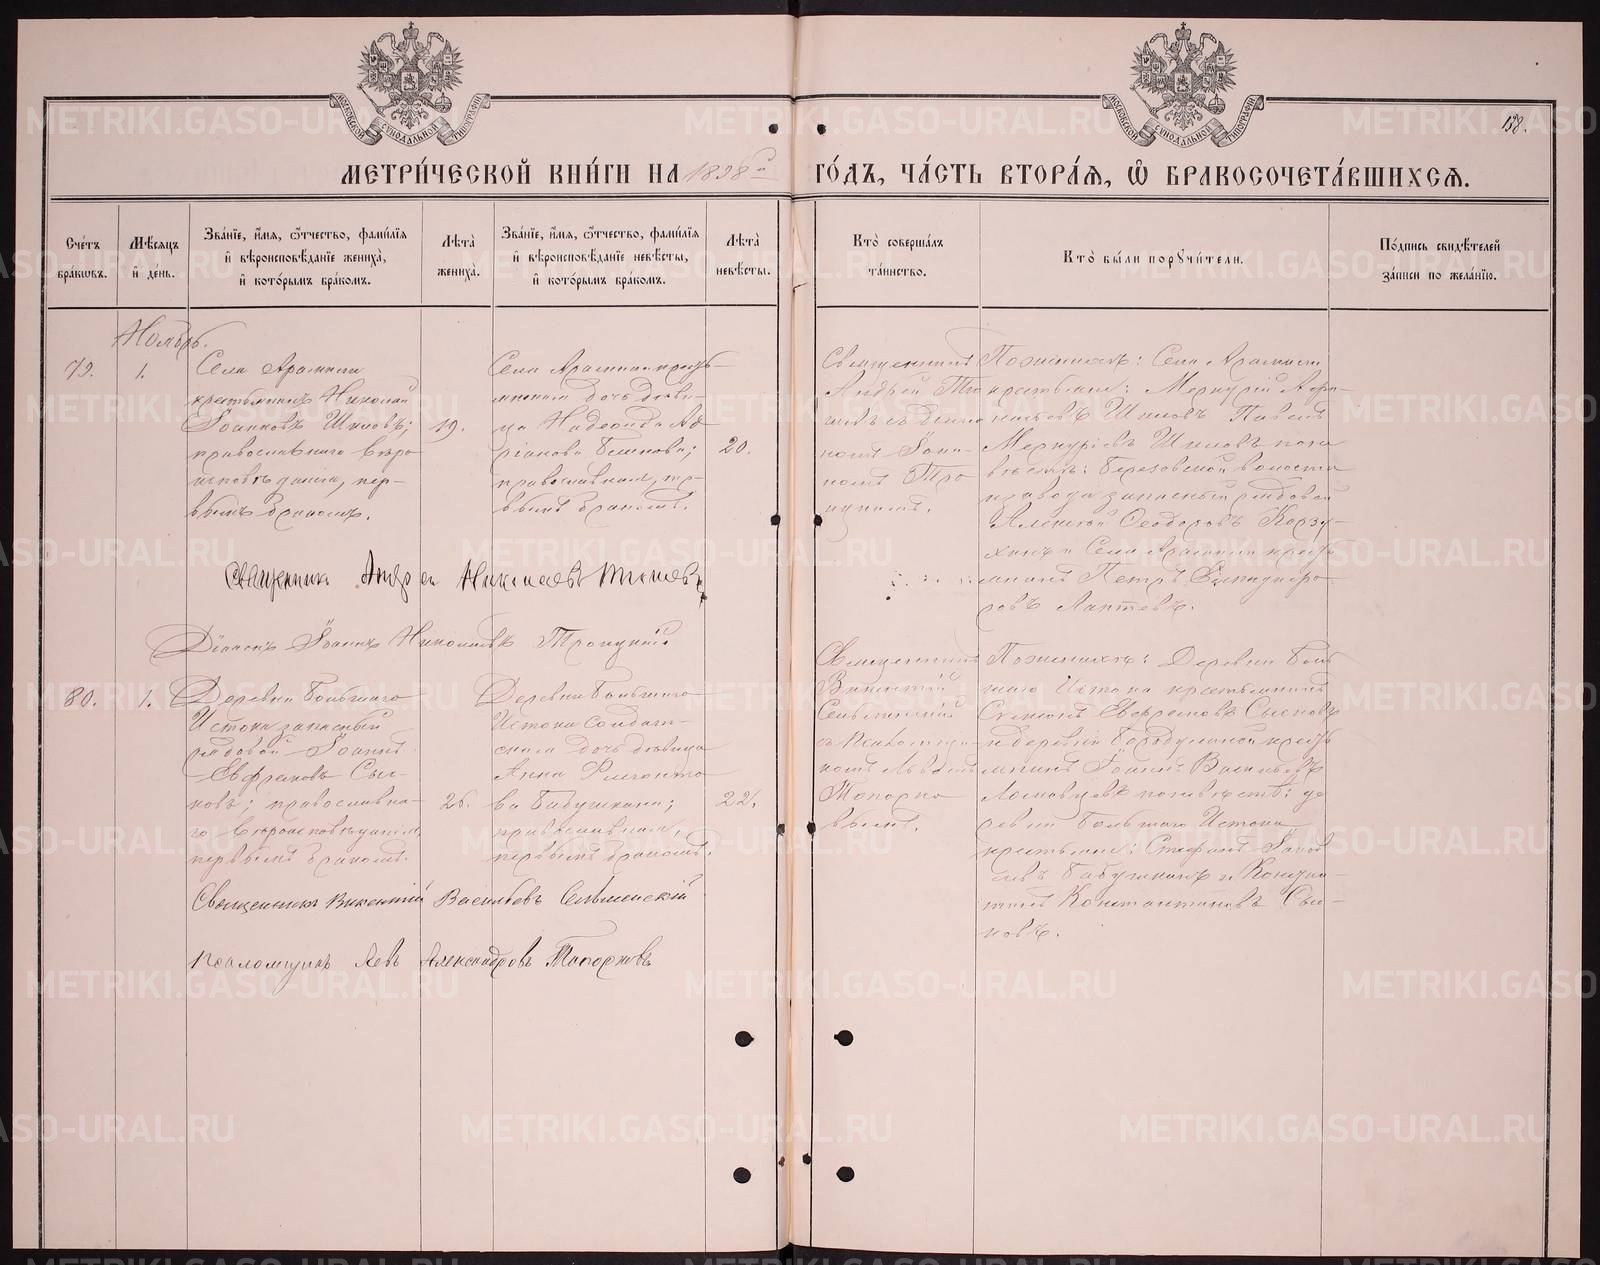 МОСКОВСКОЙ СѴНОДАЛЬНОЙ ТИПОГРАФІИ
МОСКОВСКОЙ СѴНОДАЛЬНОЙ ТИПОГРАФІИ
138.
МЕТРИ́ЧЕСКОЙ КНИ́ГИ НА 1898й ГО́ДЪ, ЧА́СТЬ ВТОРА́Ѧ, Ѽ БРАКОСОЧЕТА́ВШИХСѦ.
Сче́тъ бра́кѡвъ.
Мѣ́сѧцъ и҆ де́нь.
Зва́нїе, и҆́мѧ, ѻ҆́тчество, фами́лїѧ и҆ вѣроисповѣ́данїе жениха̀, и҆ кото́рымъ бра́комъ.
Лѣ́та̀ жениха̀.
Зва́нїе, и҆́мѧ, ѻ҆́тчество, фами́лїѧ и҆ вѣроисповѣ́данїе невѣ́сты, и҆ кото́рымъ бра́комъ.
Лѣ́та̀ невѣ́сты.
Кто̀ соверша́лъ та́инство.
Кто̀ бы́ли порꙋчи́тели.
По́дпись свидѣ́телей за́писи по жела́нїю.
Ноябрь.
79.
1.
Села Арамили
крестьянинъ Николай
Іоанновъ Шиловъ;
православнаго вѣро
исповѣданія, пер-
вымъ бракомъ.
19.
Села Арамили кресть-
янина дочь дѣви-
ца Надежда Ад
ріанова
православная, пер-
вымъ бракомъ.
20.
Священникъ
Андрей
съ діако
номъ Іоан-
номъ Тро
ицкимъ.
По женихѣ: Села Арамили
крестьяне: Меркурій
Шиловъ Павелъ
Меркуріевъ Шиловъ по не
вѣстѣ: Березовской волости
и завода запасный рядовой
Алексѣй Ѳеодоровъ Корзу-
хинъ и Села Арамили кресть
янинъ Петръ
ровъ Лаптевъ.
Священникъ Андрей Николаевъ
Діаконъ Іоаннъ Николаевъ Троицкій.
80.
1.
Деревни Большаго
Истока запасный
рядовой Іоаннъ
Евфремовъ Сыс-
ковъ; православна-
го вѣроисповѣданія,
первымъ бракомъ.
26.
Деревни Большаго
Истока солдат-
ская дочь дѣвица
Анна
ва Бабушкина;
православная,
первымъ бракомъ.
22.
Священникъ
Викентій
Сельменскій
съ псаломщи-
комъ Львомъ
Топорко
вымъ.
По женихѣ: Деревни Боль
шаго Истока крестьянинъ
Евфремовъ Сысковъ
и деревни кресть
янинъ Іоаннъ Васильевъ
по невѣстѣ: де
ревни Большаго Истока
крестьяне: Стефанъ Іаков
левъ Бабушкинъ и
Константиновъ Сыс-
ковъ.
Священникъ Викентій Васильевъ Сельменскій
Псаломщикъ Левъ Александровъ Топорковъ
METRIKI.GASO-URAL.RU